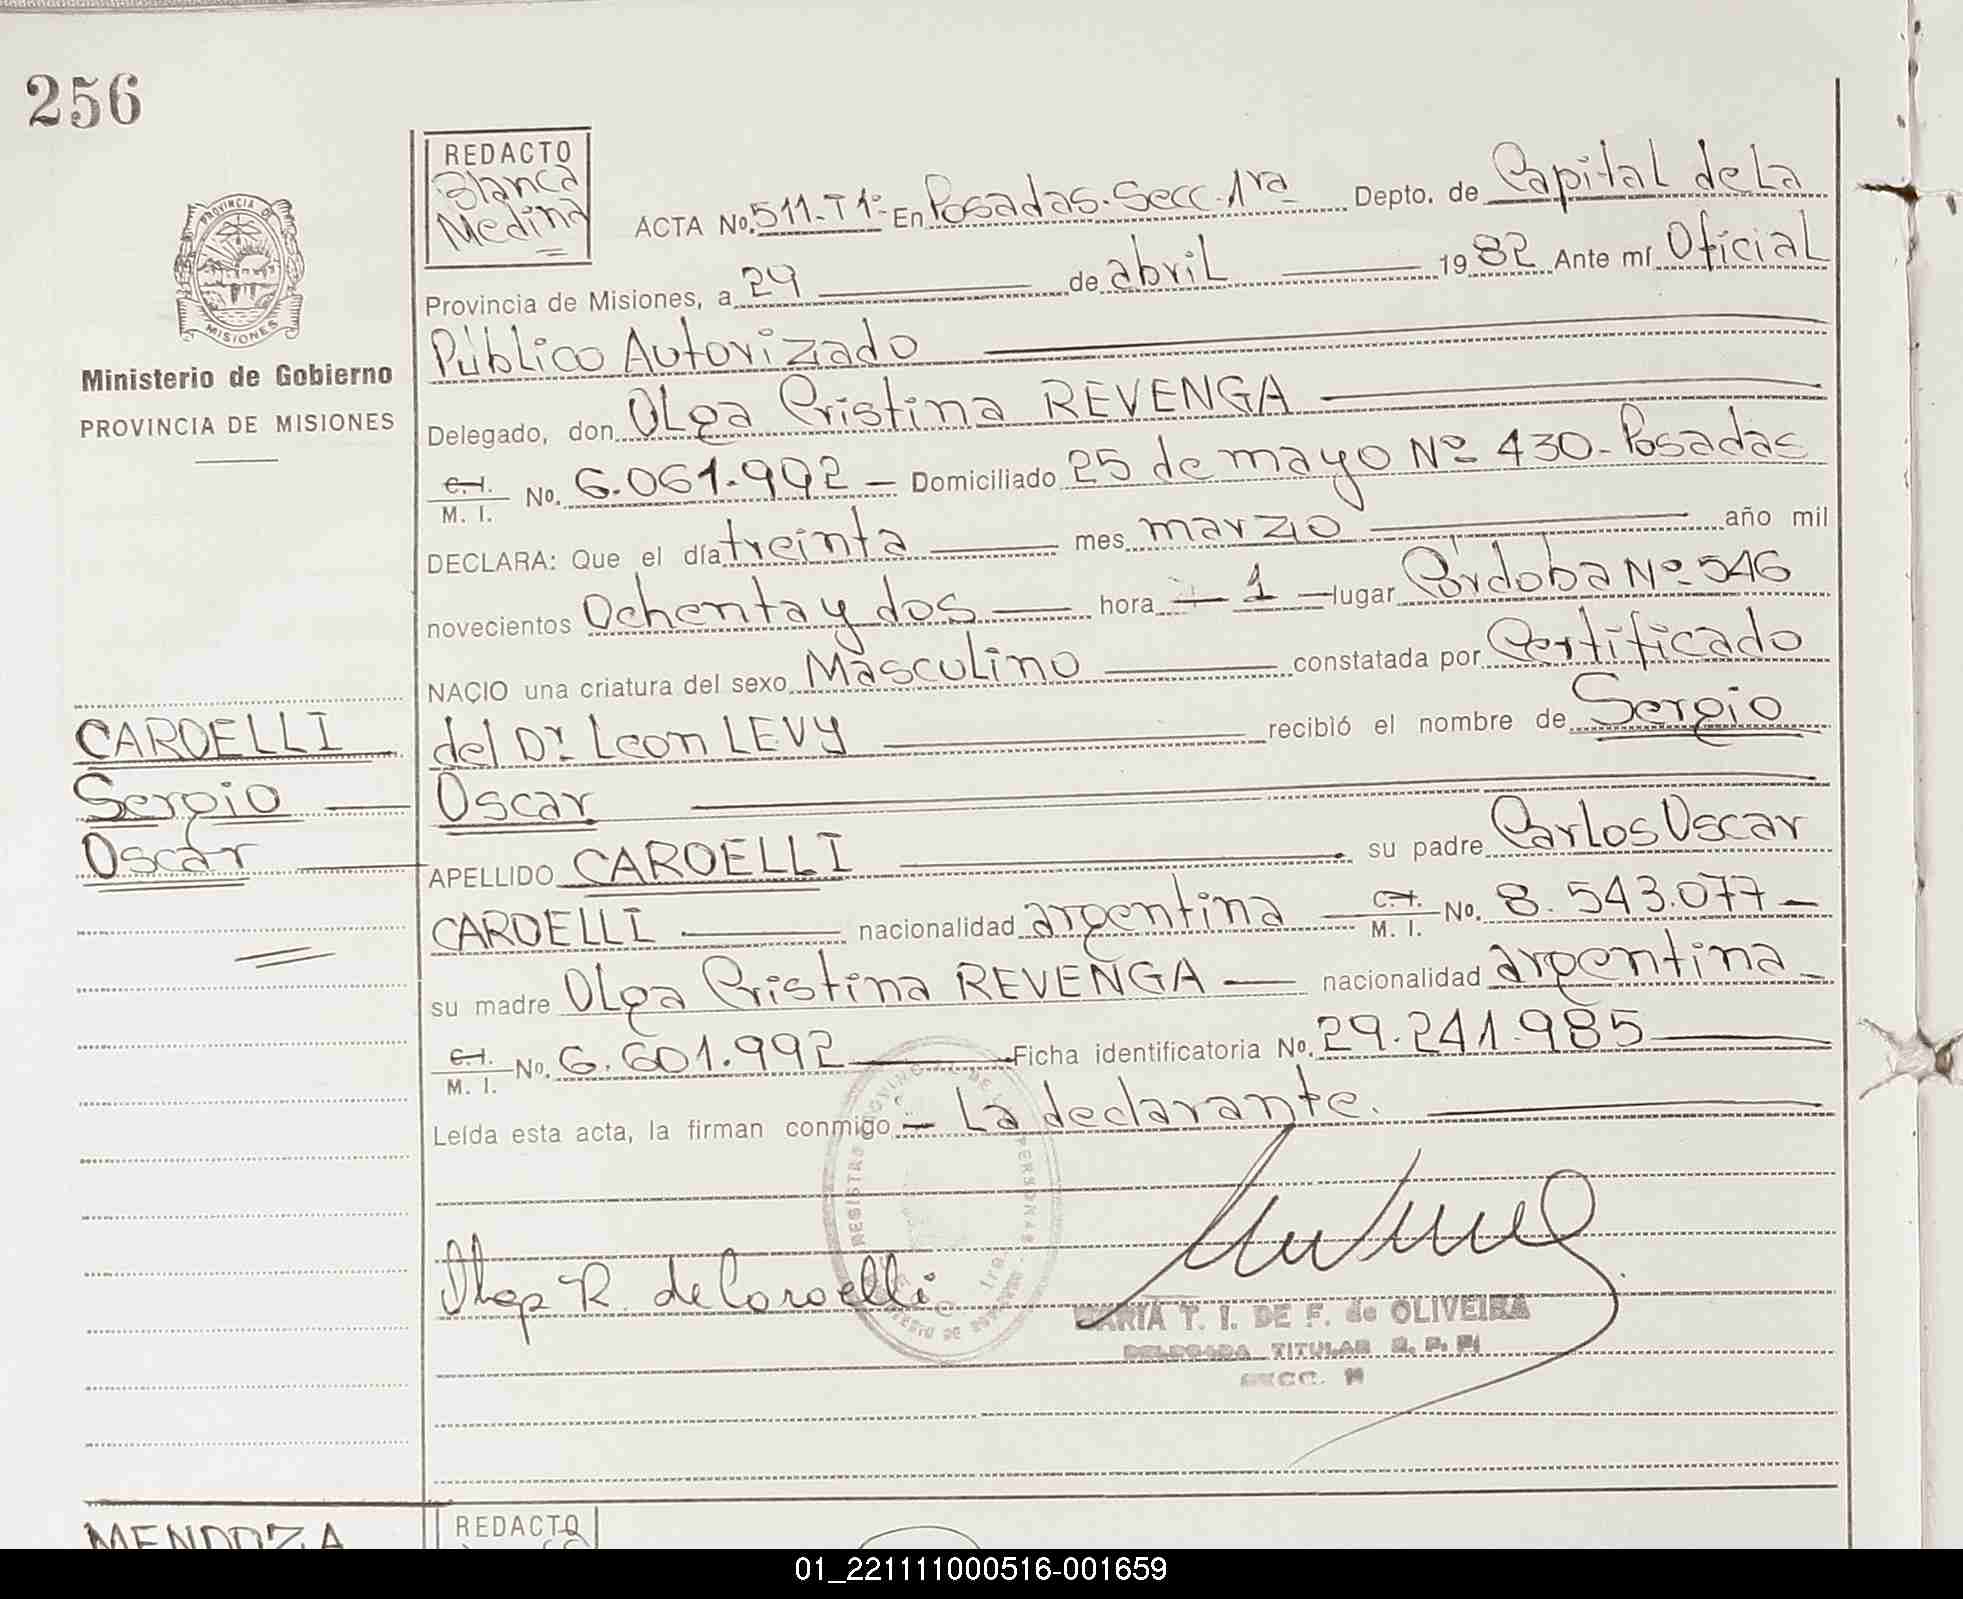 256
REDACTO
Blanca
Medina
ACTA No. 511-T1º- En Posadas. Secc. 1ra Depto. de Capital de La
Provincia de Misiones, a 29 de abril 1982 Ante mí Oficial
Público Autorizado
Delegado, don Olga Cristina REVENGA
C.I. M. I. No. 6.061.992 - Domiciliado 25 de mayo Nº 430 - Posadas
DECLARA: Que el día treinta mes marzo año mil
novecientos Ochenta y dos hora 1 lugar Córdoba Nº 546
NACIO una criatura del sexo Masculino constatada por Certificado
del Dr. Leon LEVY recibió el nombre de Sergio
Oscar
APELLIDO CAROELLI su padre Carlos Oscar
CAROELLI nacionalidad argentina C.I. M. I. No. 8.543.077 -
su madre Olga Cristina REVENGA nacionalidad argentina
C.I. M. I. No. 6.601.992 Ficha identificatoria No. 29.241.985
Leída esta acta, la firman conmigo - La declarante.
Olga R. de Caroelli
MARIA T. I. DE F. de OLIVEIRA
DELEGADA TITULAR R. P. P.
SECC.
PROVINCIA DE
MISIONES
Ministerio de Gobierno
PROVINCIA DE MISIONES
CAROELLI
Sergio
Oscar
MENDOZA
REDACTO
01_221111000516-001659